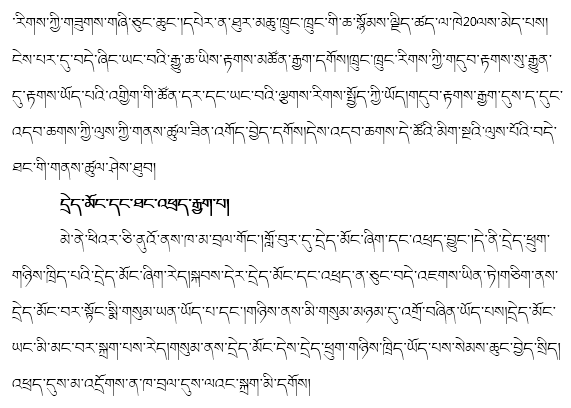 ་རིགས་ཀྱི་གཟུགས་གཞི་ཅུང་ཆུང་།དཔེར་ན་ཐུར་མཆུ་ཁྲུང་ཁྲུང་གི་ཆ་སྙོམས་ལྗིད་ཚད་ལ་ཁེ20ལས་མེད་པས།
ངེས་པར་དུ་བདེ་ཞིང་ཡང་བའི་རྒྱུ་ཆ་ཡིས་རྟགས་མཚོན་རྒྱག་དགོས།ཁྲུང་ཁྲུང་རིགས་ཀྱི་གདུབ་རྟགས་སུ་རྒྱུན་
དུ་རྟགས་ཡོད་པའི་འགྱིག་གི་ཚོན་དར་དང་ཡང་བའི་ལྕགས་རིགས་སྤྱོད་ཀྱི་ཡོད།གདུབ་རྟགས་རྒྱག་དུས་ད་དུང་
འདབ་ཆགས་ཀྱི་ལུས་ཀྱི་གནས་ཚུལ་ཟིན་འགོད་བྱེད་དགོས།དེས་འདབ་ཆགས་དེ་ཚོའི་མིག་སྔའི་ལུས་པོའི་བདེ་
ཐང་གི་གནས་ཚུལ་ཤེས་ཐུབ།
དྲེད་མོང་དང་ཐང་འཕྲད་རྒྱག་པ།
མེ་ནེ་ཕིའར་ཅི་ནུའོ་ནས་ཁ་མ་བྲལ་གོང་།གློ་བུར་དུ་དྲེད་མོང་ཞིག་དང་འཕྲད་བྱུང་།དེ་ནི་དྲེད་ཕྲུག་
གཉིས་ཁྲིད་པའི་དྲེད་མོང་ཞིག་རེད།སྐབས་དེར་དྲེད་མོང་དང་འཕྲད་ན་ཅུང་བདེ་འཇགས་ཡིན་ཏེ།གཅིག་ནས་
དྲེད་མོང་བར་སྟོང་སྨི་གསུམ་ཡན་ཡོད་པ་དང་།གཉིས་ནས་མི་གསུམ་མཉམ་དུ་འགྲོ་བཞིན་ཡོད་པས།དྲེད་མོང་
ཡང་མི་མང་བར་སྐྲག་པས་རེད།གསུམ་ནས་དྲེད་མོང་དེས་དྲེད་ཕྲུག་གཉིས་ཁྲིད་ཡོད་པས་སེམས་ཆུང་བྱེད་སྲིད།
འཕྲད་དུས་མ་འདྲོགས་ན་ཁ་བྲལ་དུས་ལའང་སྐྲག་མི་དགོས།